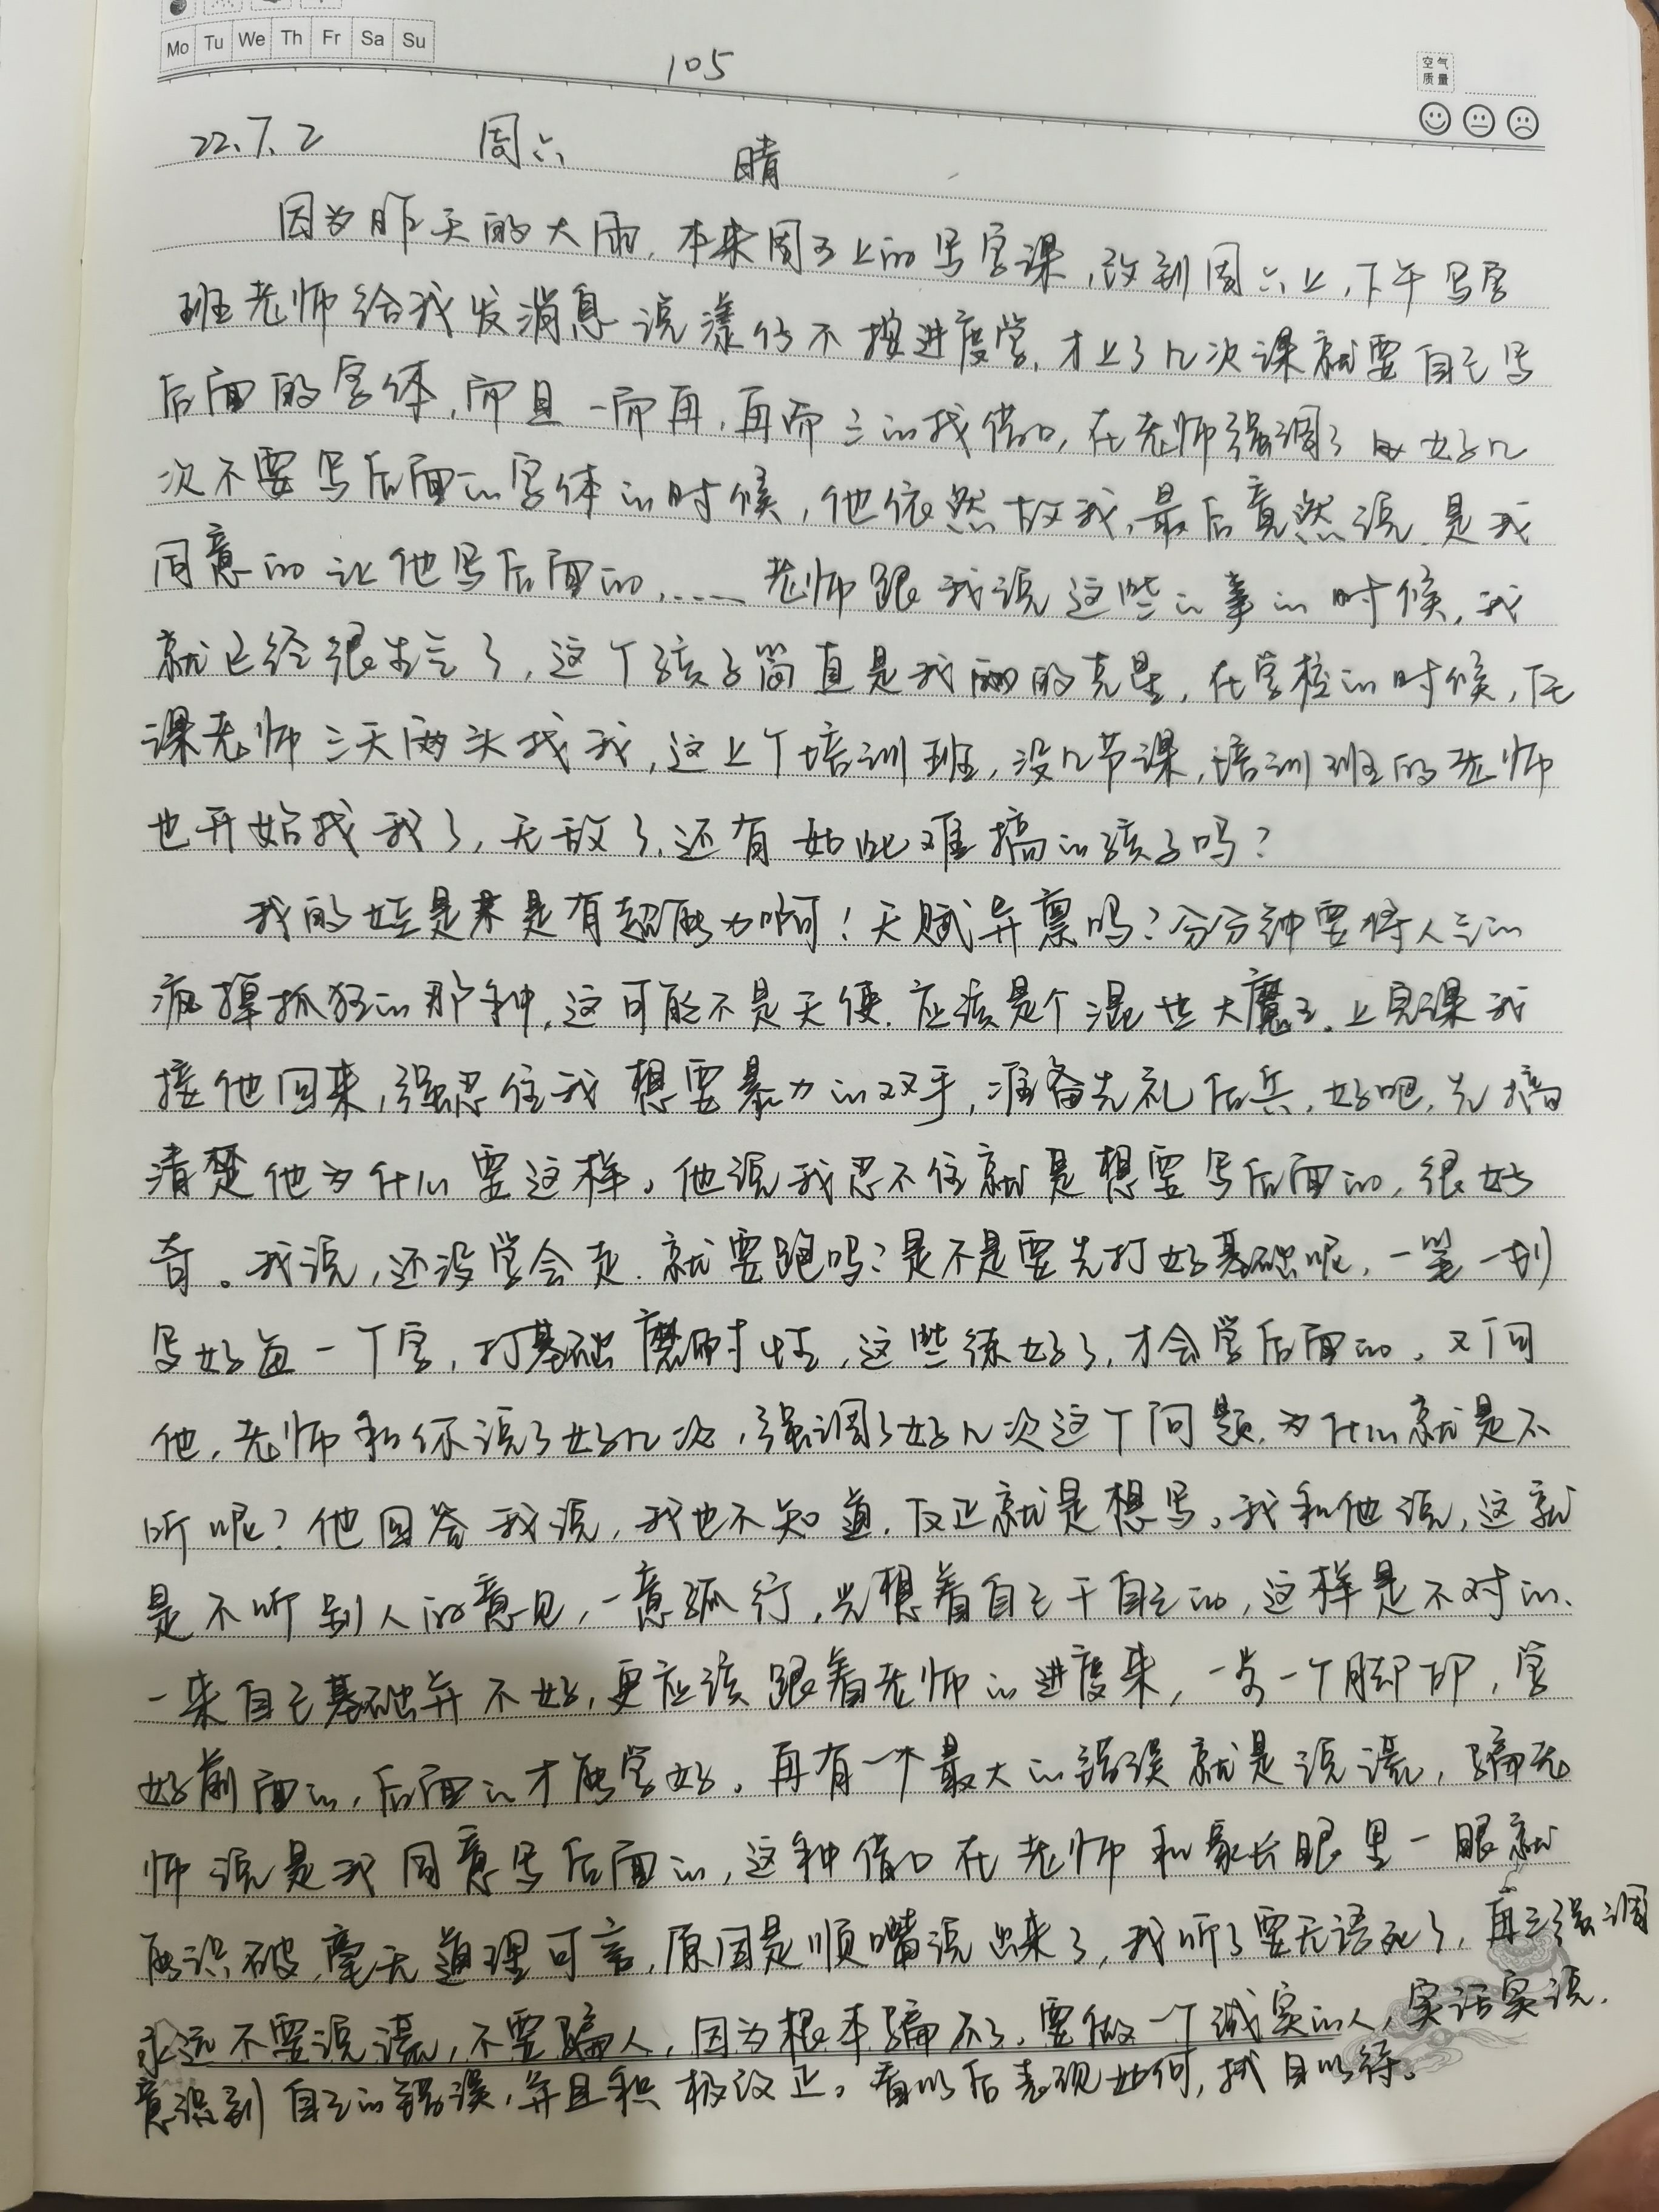 Mo Tu We Th Fr Sa Su
105
空气
质量
22.7.2 周六 晴
因为昨天的大雨,本来周五上的写字课,改到周六上,下午写字
班老师给我发消息说漾仔不按进度学,才上了几次课就要自己写
后面的字体,而且一而再,再而三的找借口,在老师强调了好几
次不要写后面的字体的时候,他依然故我,最后竟然说,是我
同意的让他写后面的,……老师跟我说这些的事的时候,我
就已经很生气了,这个孩子简直是我的克星,在学校的时候,任
课老师三天两头找我,这上个培训班,没几节课,培训班的老师
也开始找我了,无敌了,还有如此难搞的孩子吗?
我的娃是来是有超能力啊!天赋异禀吗?分分钟要将人气的
疯掉抓狂的那种,这可能不是天使,应该是个混世大魔王。上完课我
接他回来,强忍住我想要暴力的双手,准备先礼后兵,好吧,先搞
清楚他为什么要这样。他说我忍不住就是想要写后面的,很好
奇。我说,还没学会走,就要跑吗?是不是要先打好基础呢,一笔一划
写好每一个字,打基础磨耐性,这些练好了,才会学后面的。又问
他,老师和你说了好几次,强调了好几次这个问题,为什么就是不
听呢?他回答我说,我也不知道,反正就是想写。我和他说,这就
是不听别人的意见,一意孤行,光想着自己干自己的,这样是不对的、
一来自己基础并不好,更应该跟着老师的进度来,一步一个脚印,学
好前面的,后面的才能学好。再有一个最大的错误就是说谎,骗老
师说是我同意写后面的,这种借口在老师和家长眼里一眼就
能识破,毫无道理可言,原因是顺嘴说出来了,我听了要无语死了,再三强调
永远不要说谎,不要骗人,因为根本骗不了,要做一个诚实的人,实话实说.
意识到自己的错误,并且积极改正。看以后表现如何,拭目以待。